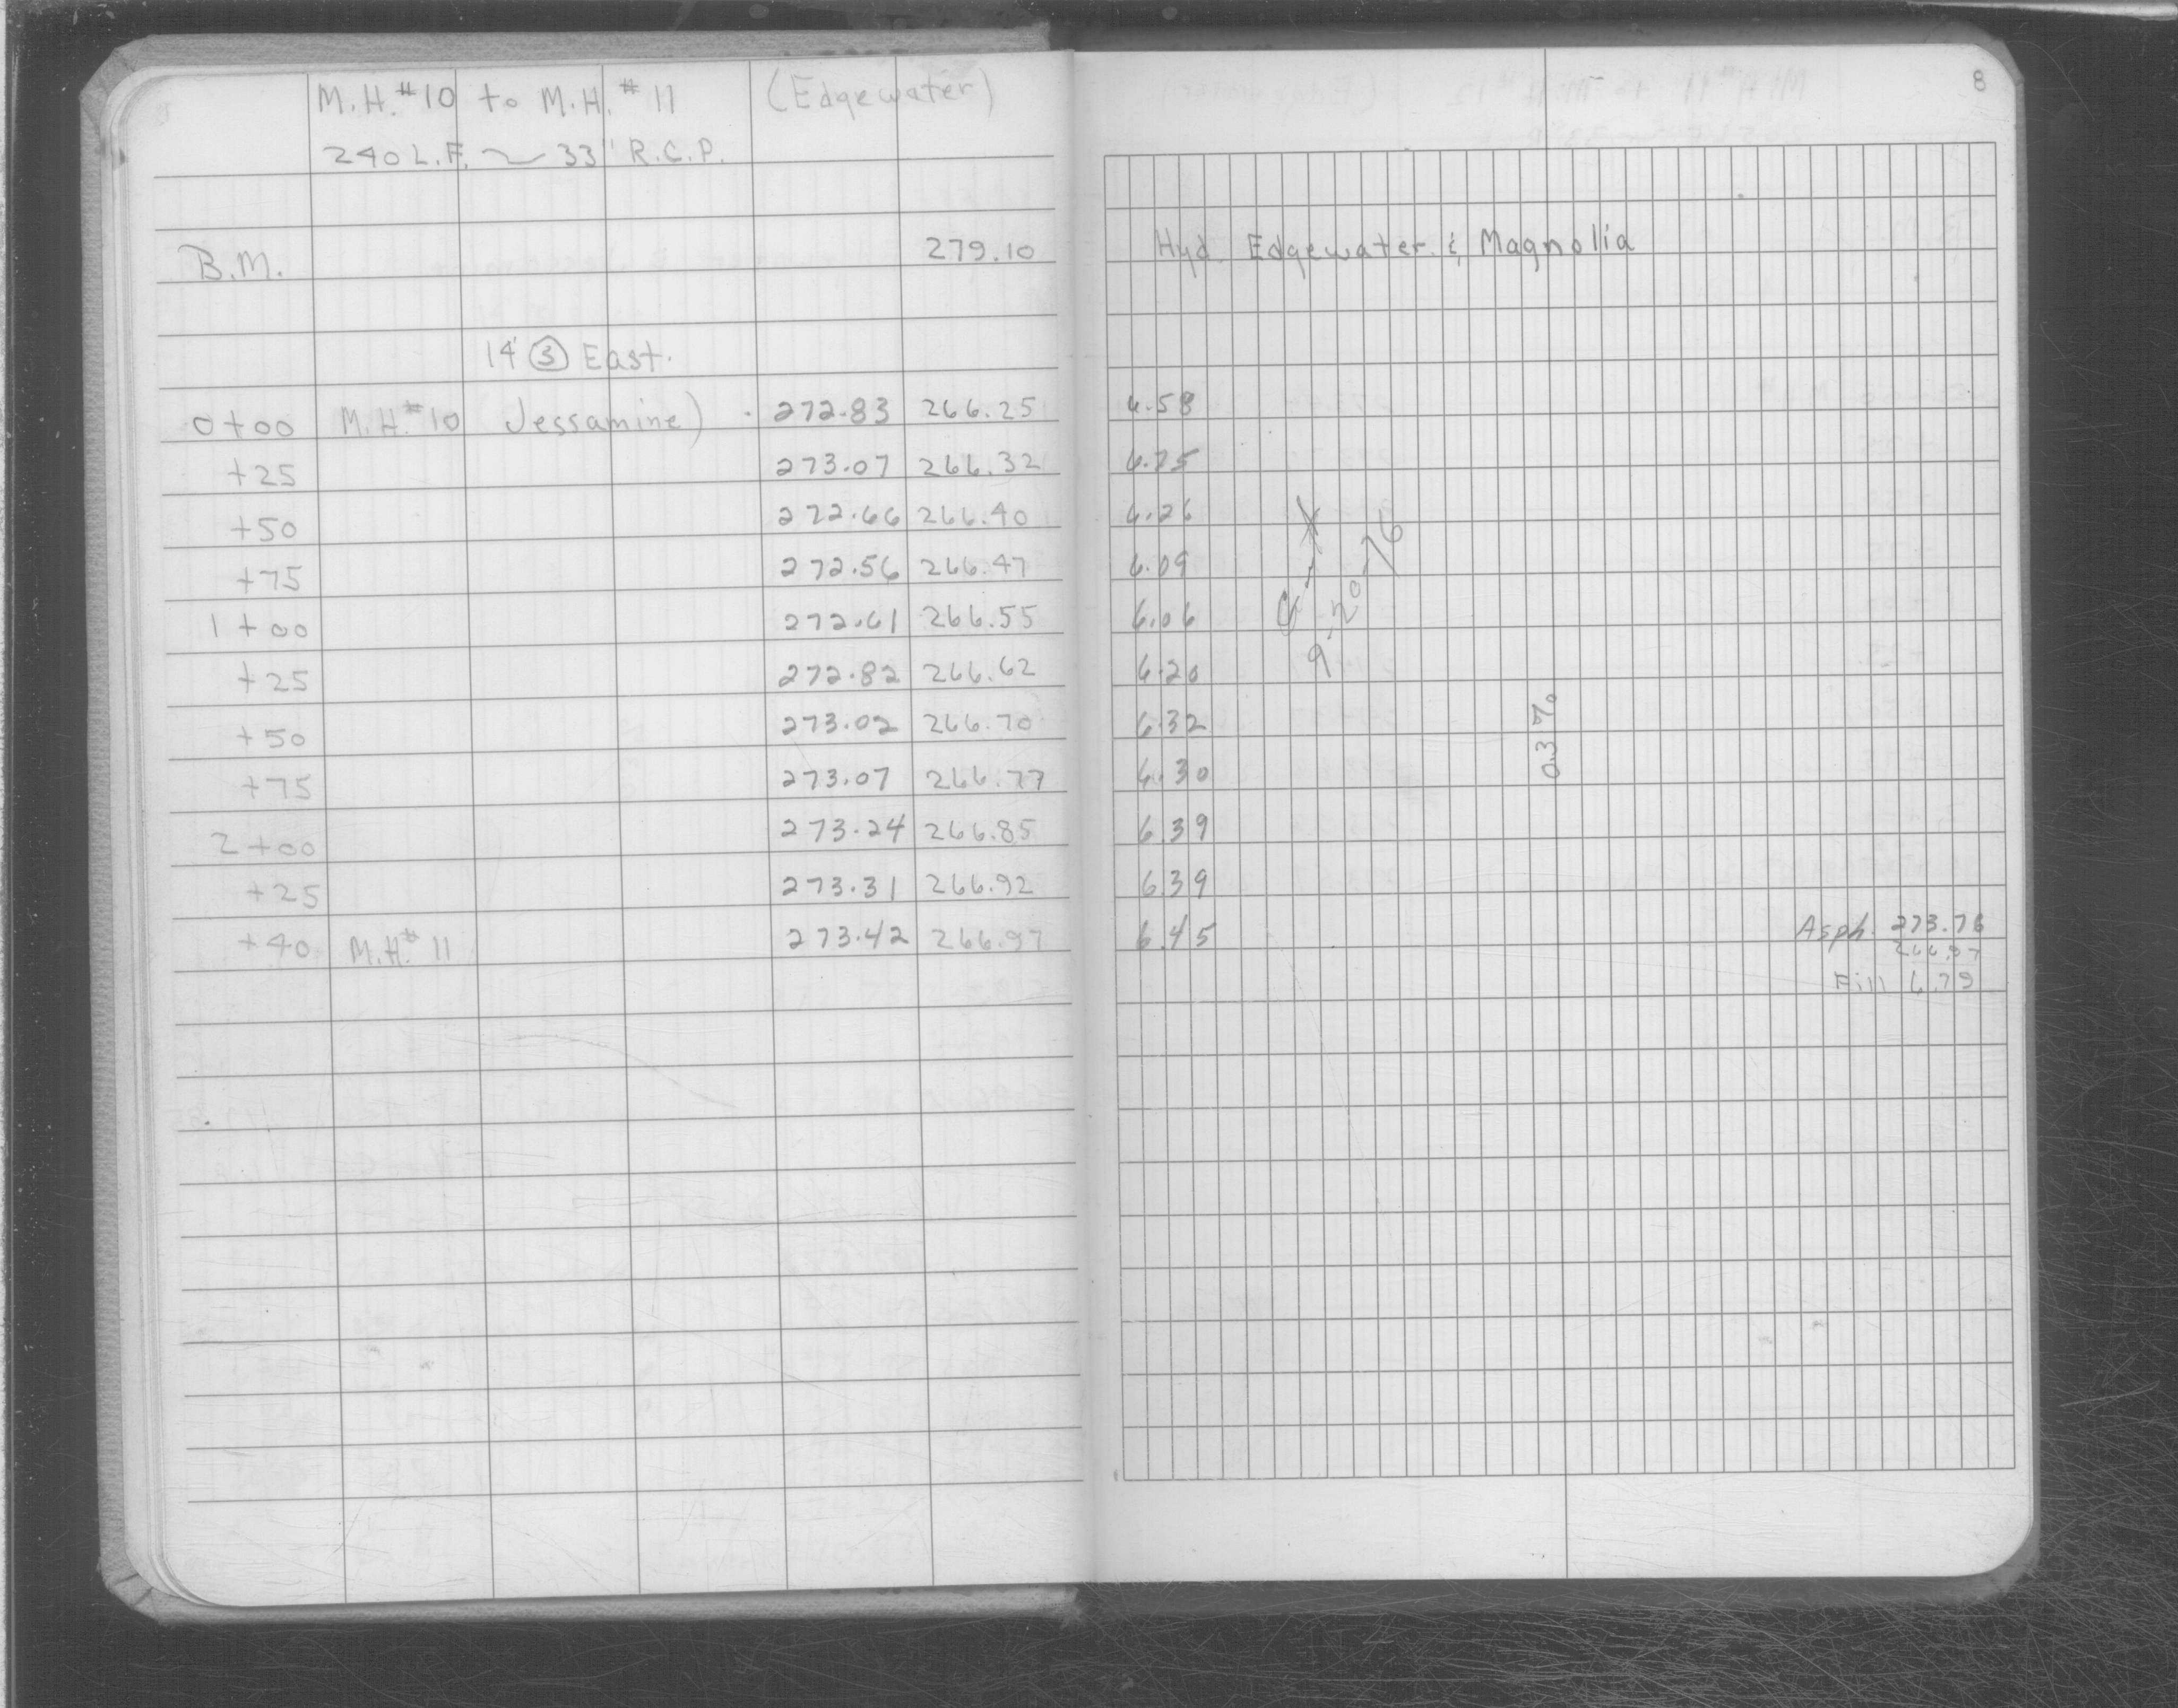 M.H.#10 to M.H.#11 (Edgewater)
240 L.F. ~ 33" R.C.P.
B.M. 279.10
14' ③ East.
0+00 M.H.#10 Jessamine) 272.83 266.25
+25 273.07 266.32
+50 272.66 266.40
+75 272.56 266.47
1+00 272.61 266.55
+25 272.82 266.62
+50 273.02 266.70
+75 273.07 266.77
2+00 273.24 266.85
+25 273.31 266.92
+40 M.H.#11 273.42 266.97
8
Hyd. Edgewater & Magnolia
6.58
6.75
6.26
6.09
6.06
6.20
6.32
6.30
6.39
6.39
6.45
9-20-76
0.3%
Asph. 273.76
266.97
Fill 6.79